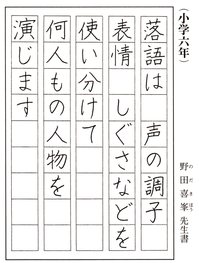 (小学六年)
落語は 声の調子
表情 しぐさなどを
使い分けて
何人もの人物を
演じます
野田喜峯先生書
のだきほう